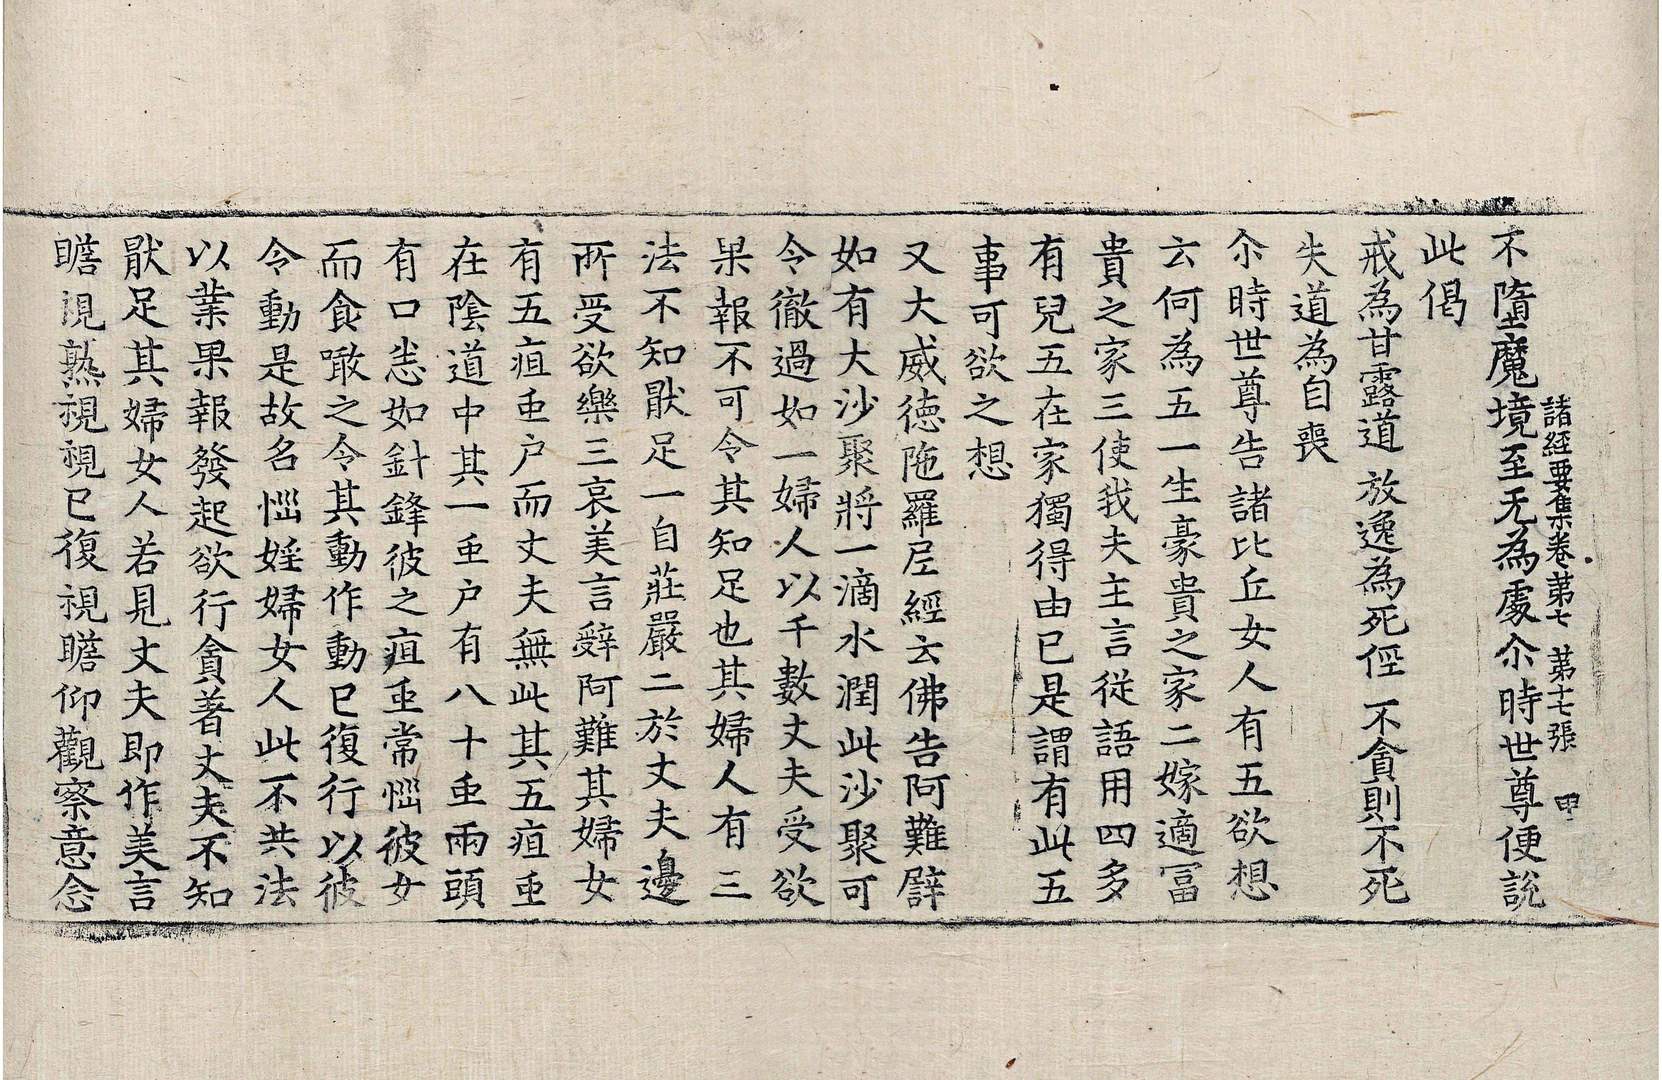 諸經要集卷第七 第十七張 甲
不墮魔境至无為處尒時世尊便說
此偈
戒為甘露道 放逸為死俓 不貪則不死
失道為自喪
尒時世尊告諸比丘女人有五欲想
云何為五一生豪貴之家二嫁適冨
貴之家三使我夫主言從語用四多
有兒五在家獨得由已是謂有此五
事可欲之想
又大威德陁羅尼經云佛告阿難譬
如有大沙聚將一滴水潤此沙聚可
令徹過如一婦人以千數丈夫受欲
果報不可令其知足也其婦人有三
法不知猒足一自莊嚴二於丈夫邊
所受欲樂三哀美言辭阿難其婦女
有五疽䖝户而丈夫無此其五疽䖝
在陰道中其一䖝户有八十䖝兩頭
有口悉如針鋒彼之疽䖝常惱彼女
而食噉之令其動作動已復行以彼
令動是故名惱婬婦女人此不共法
以業果報發起欲行貪著丈夫不知
猒足其婦女人若見丈夫即作美言
瞻視熟視視已復視瞻仰觀察意念